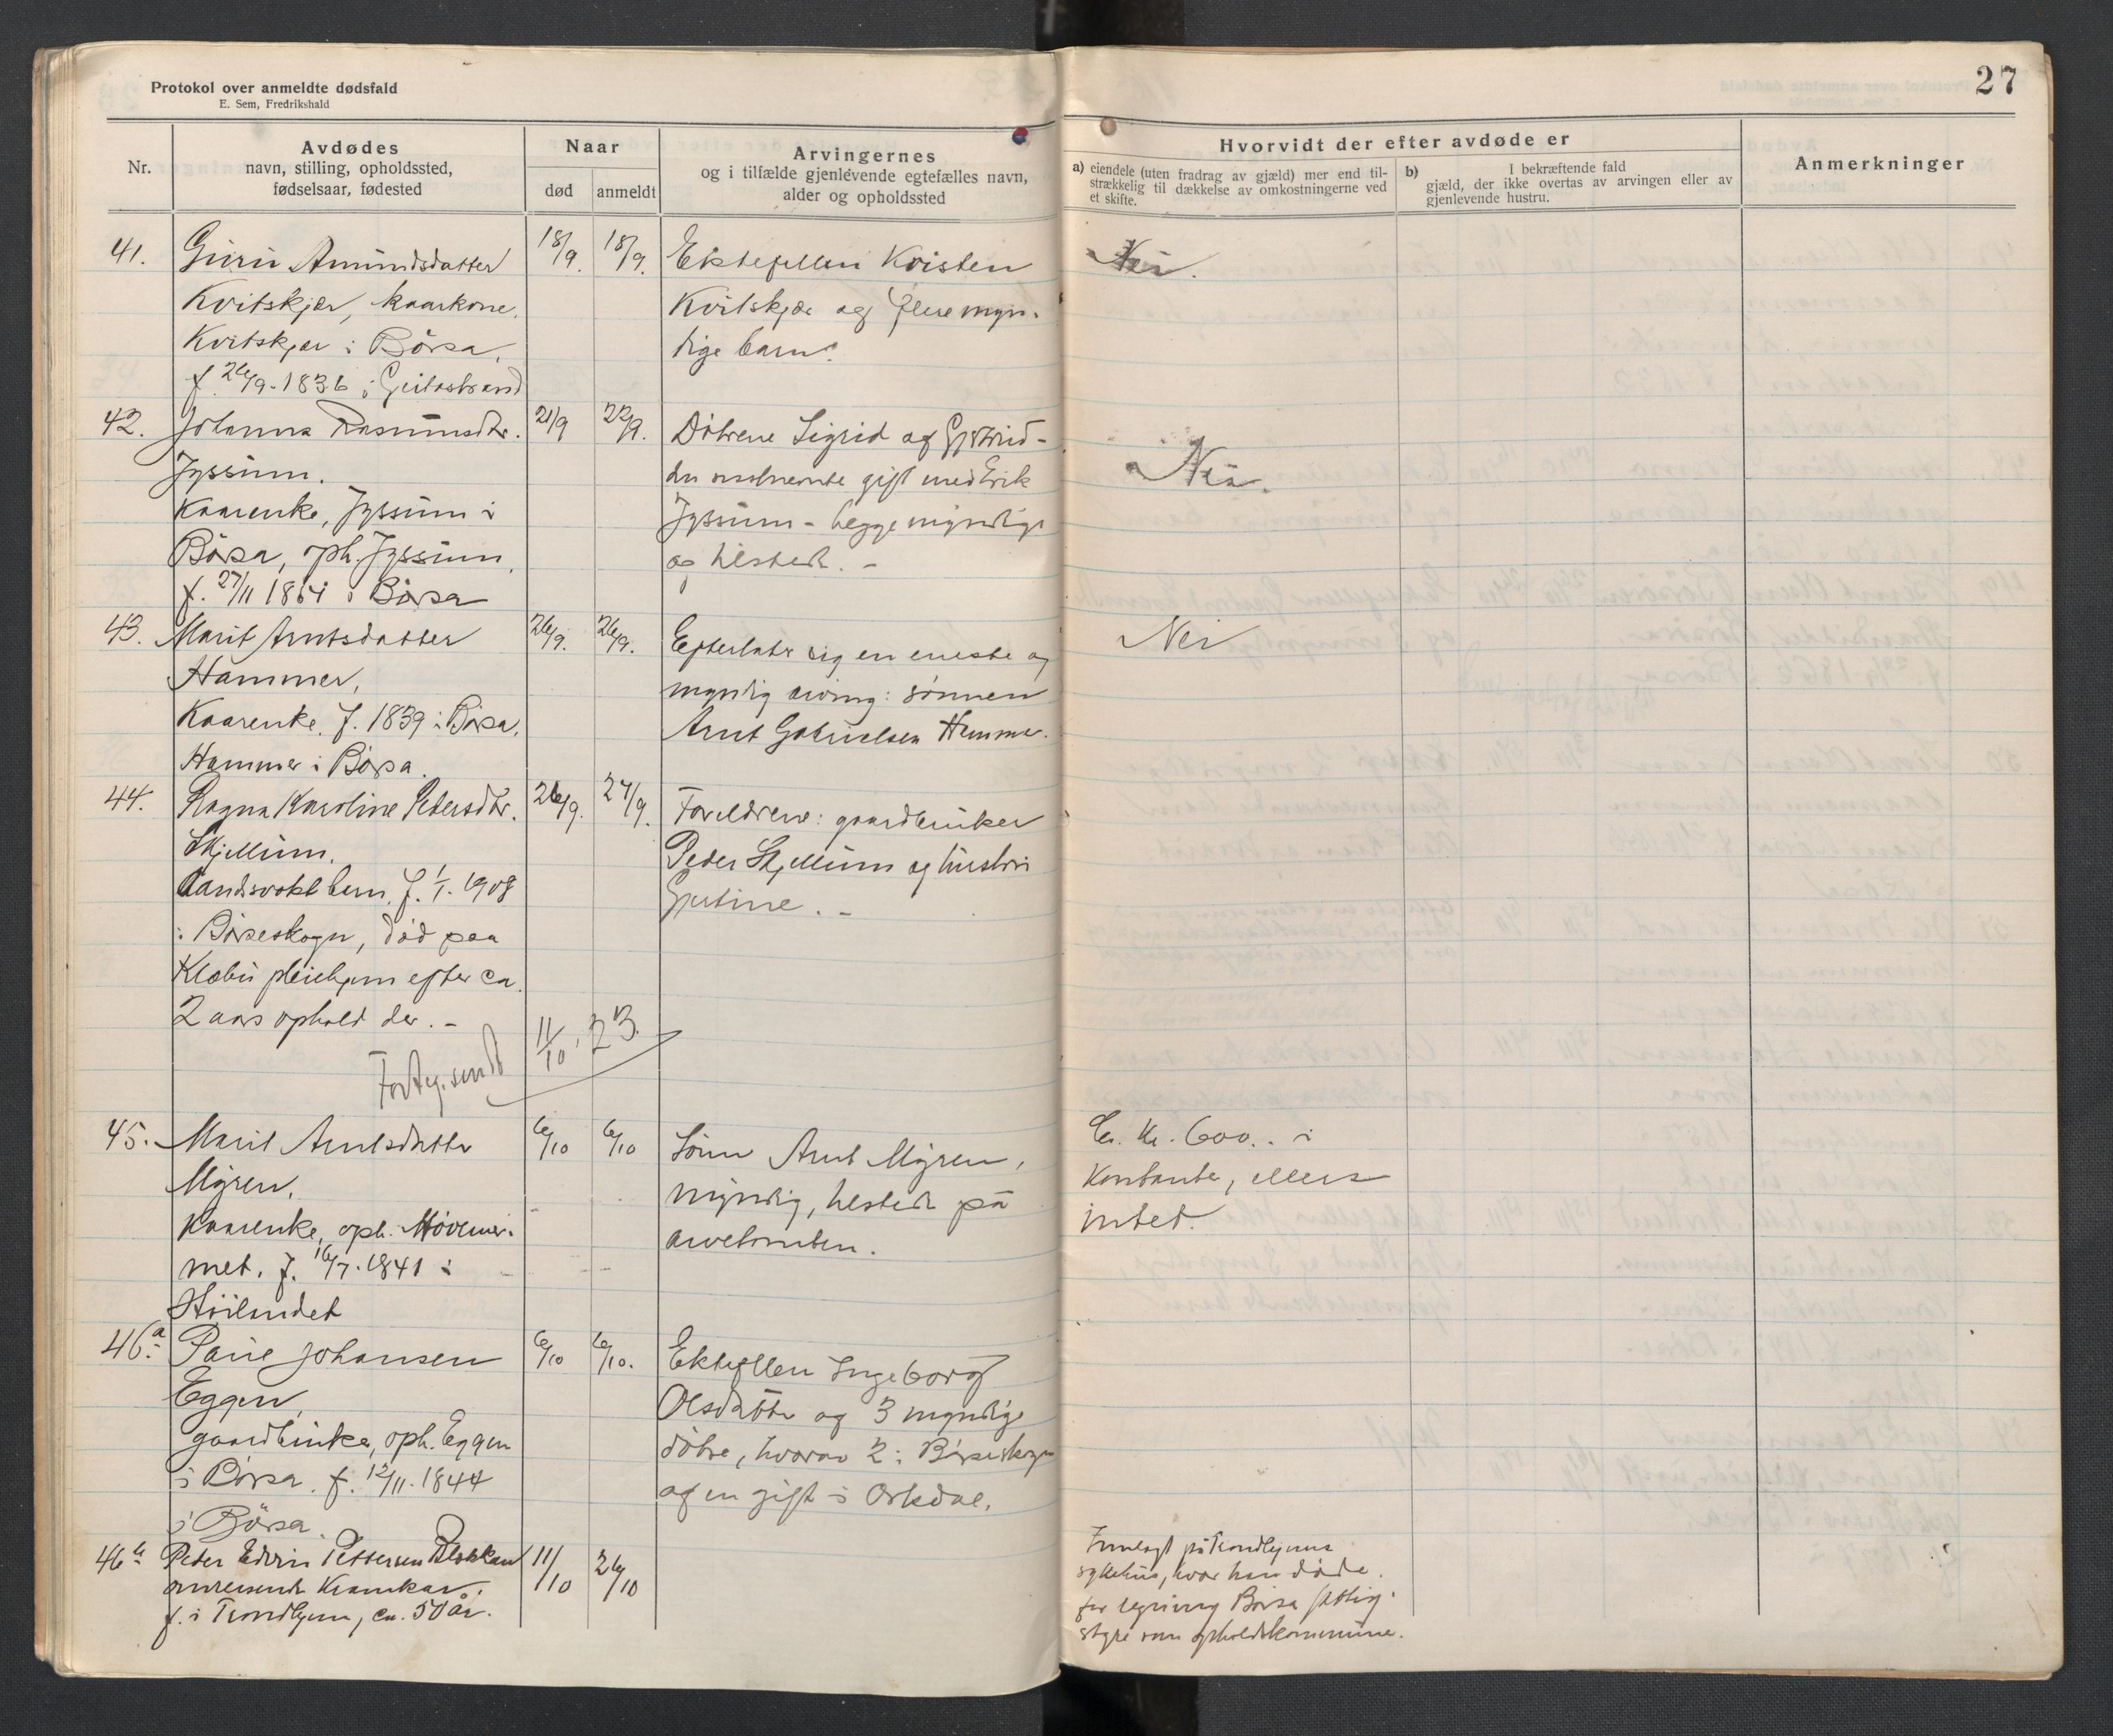 Protokol over anmeldte dødsfald
E. Sem, Fredrikshald
27
Nr.
Avdødes
navn, stilling, opholdssted,
fødselsaar, fødested
Naar
død
anmeldt
Arvingernes
og i tilfælde gjenlevende egtefælles navn,
alder og opholdssted
Hvorvidt der efter avdøde er
a) eiendele (uten fradrag av gjæld) mer end til-
strækkelig til dækkelse av omkostningerne ved
et skifte.
b) I bekræftende fald
gjæld, der ikke overtas av arvingen eller av
gjenlevende hustru.
Anmerkninger
41.
Guru Amundsdatter
Kvitskjær, kaarkone,
Kvitskjær i Börsa,
f. 26/9-1836 i Geitastrand
18/9.
18/9.
Ektefellen Kristen
Kvitskjær og flere myn-
dige barn.
Nei.
42.
Johanna Rasmusdtr.
Jyssum.
Kaarenke, Jyssum i
Börsa, oph. Jyssum,
f. 27/11 1854 i Börsa
21/9
22/9.
Døtrene Sigrid og Gjertrud -
den sidstnevnte gift med Erik
Jyssum - begge myndige
og tilstede. -
Nei.
43.
Marit Arntsdatter
Hammer,
Kaarenke. f. 1839 i Börsa.
Hammer i Börsa.
26/9.
26/9.
Efterlater sig en eneste og
myndig arving: sønnen
Arnt Gabrielsen Hammer.
Nei
44.
Ragna Karoline Pedersdtr.
Skjellum.
Aandsvakt barn, f. 1/1. 1908
i Börseskogn, død paa
Klæbu pleiehjem efter ca.
2 aars ophold der. -
26/9.
27/9.
Foreldrene: gaardbruker
Peder Skjellum og hustru
Gjertine. -
Forteg. sendt 11/10. 23.
45.
Marit Arntsdatter
Myren,
Kaarenke, oph. 
met. f. 16/7. 1841 i
Høilandet
6/10
6/10
Sønn Arnt Myren,
myndig, tilstede på
arvetomten.
Ca. kr. 600.. i
Kontante, ellers
intet.
46a.
Paul Johansen
Eggen,
gaardbruker, oph. Eggen
i Börsa. f. 12/11. 1844
i Börsa.
6/10
6/10.
Ektefellen Ingeborg
Olsdatter og 3 myndige
døtre, hvorav 2 i Börseskogn
og en gift i Orkdal.
46b
Peder Edvin Pettersen
omreisende Kramkar.
f. i Trondhjem, ca. 50 år.
11/10
26/10
Innlagt på Trondhjems
sykehus, hvor han døde.
for regning Börsa fattig-
styre som opholdskommune.